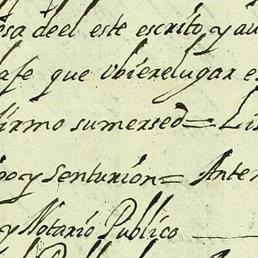 esa deel este escrito, y au
afe que ubiere lugar e
firmo sumersed = Li
po y Senturion = Ante
y Notario Publico